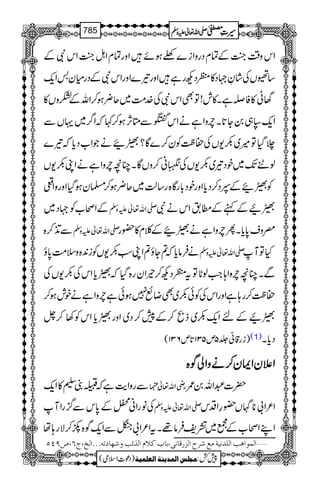 سیرتِ مصطفیٰ صلی اللہ تعالیٰ علیہ وسلم 785
اس وقت جنت کے تمام دروازے کھلے ہوئے ہیں اور تمام اہل جنت اس نبی کے
ساتھیوں کی شانِ جہاد کا منظر دیکھ رہے ہیں اور تیرے اور اس نبی کے درمیان بس ایک
گھاٹی کا فاصلہ ہے۔ کاش! تو بھی اس نبی کی خدمت میں حاضر ہو کر اللہ کے لشکروں کا
ایک سپاہی بن جاتا۔ چرواہے نے اس گفتگو سے متاثر ہو کر کہا کہ اگر میں یہاں سے
چلا گیا تو میری بکریوں کی حفاظت کون کرے گا؟ بھیڑئیے نے جواب دیا کہ تیرے
لوٹنے تک میں خود تیری بکریوں کی نگہبانی کروں گا۔ چنانچہ چرواہے نے اپنی بکریوں
کو بھیڑئیے کے سپرد کر دیا اور خود بارگاہِ رسالت میں حاضر ہو کر مسلمان ہو گیا اور واقعی
بھیڑئیے کے کہنے کے مطابق اس نے نبی صلی اللہ تعالیٰ علیہ وسلم کے اصحاب کو جہاد میں
مصروف پایا۔ پھر چرواہے نے بھیڑئیے کے کلام کا حضور صلی اللہ تعالیٰ علیہ وسلم سے تذکرہ
کیا تو آپ صلی اللہ تعالیٰ علیہ وسلم نے فرمایا کہ تم جاؤ تم اپنی سب بکریوں کو زندہ و سلامت پاؤ
گے۔ چنانچہ چرواہا جب لوٹا تو یہ منظر دیکھ کر حیران رہ گیا کہ بھیڑیا اس کی بکریوں کی
حفاظت کر رہا ہے اور اس کی کوئی بکری بھی ضائع نہیں ہوئی ہے چرواہے نے خوش ہو کر
بھیڑئیے کے لئے ایک بکری ذبح کر کے پیش کر دی اور بھیڑیا اس کو کھا کر چل
دیا۔(1) (زرقانی جلد ۵ ص ۱۳۵ تا ص ۱۳۶)
اعلان ایمان کرنے والی گوہ
حضرت عبداللہ بن عمر رضی اللہ تعالیٰ عنہما سے روایت ہے کہ قبیلہ بنی سلیم کا ایک
اعرابی ناگہاں حضور اقدس صلی اللہ تعالیٰ علیہ وسلم کی نورانی محفل کے پاس سے گزرا آپ
اپنے اصحاب کے مجمع میں تشریف فرما تھے۔ یہ اعرابی جنگل سے ایک گوہ پکڑ کر لا رہا تھا
المواھب اللدنیة مع شرح الزرقانی،باب کلام الذئب وشھادتہ...الخ،ج۶،ص۵۴۹
پیش کش: مجلس المدینة العلمیة (دعوتِ اسلامی)